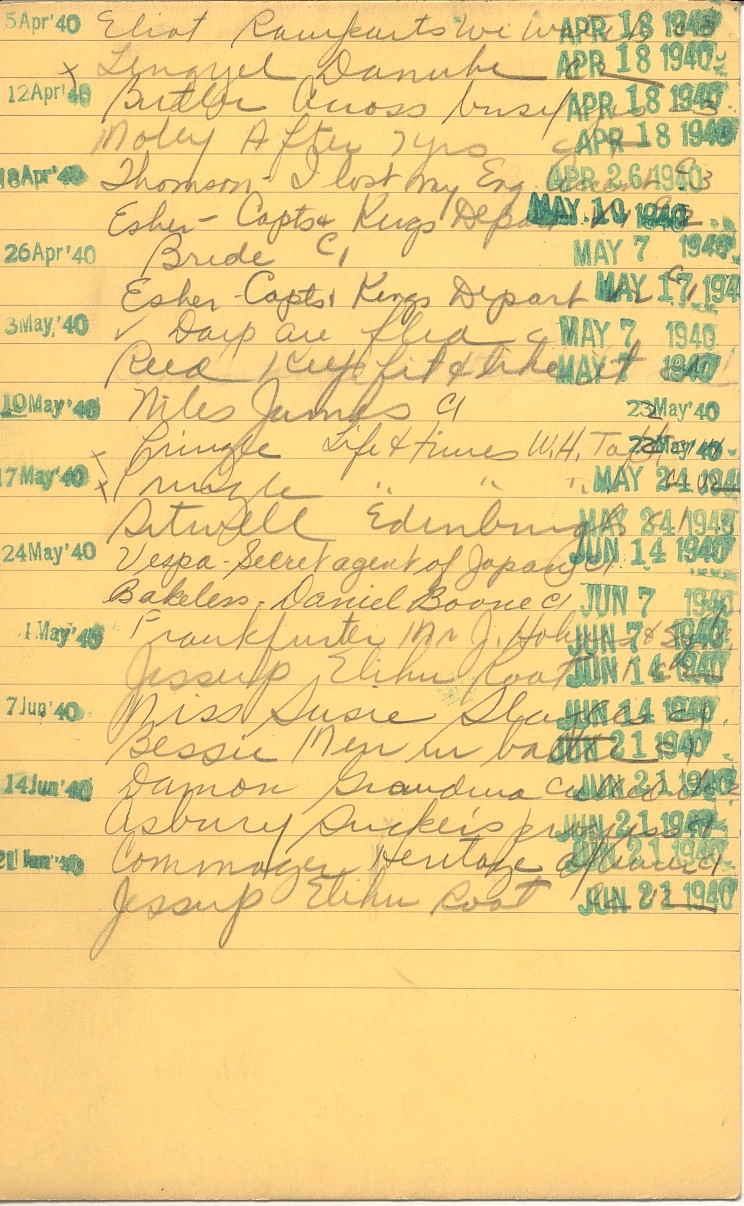 5 Apr '40 Eliot Ramparts We Watch APR 18 1940
x Lengyel Danube APR 18 1940
12 Apr '40 Butler Across busy yrs APR 18 1940
Moley After 7 yrs APR 18 1940
18 Apr '40 Thomson - I lost my Eng. APR 26 1940
Esher - Capts & Kings Depart MAY 10 1940
26 Apr '40 Bride C1 MAY 7 1940
Esher - Capts & Kings Depart MAY 17 1940
3 May '40 ✓ Days are C MAY 7 1940
Reed Keep fit & like it MAY 7 1940
10 May '40 Niles James C1 23 May '40
x Pringle Life & times W.H. Taft 23 May '40
17 May '40 x Pringle " " " MAY 24 1940
Sitwell Edinburgh C1 MAY 24 1940
24 May '40 Vespa - Secret agent of Japan C1 JUN 14 1940
Bakeless - Daniel Boone C1 JUN 7 1940
1 May '40 Frankfurter Mr J. Holmes & JUN 7 1940
Jessup Elihu Root JUN 14 1940
7 Jun '40 Miss Susie Slagles C1 JUN 14 1940
Bessie Men in battle C1 JUN 21 1940
14 Jun '40 Damon Grandma called it JUN 21 1940
Asbury Sucker's progress C1 JUN 21 1940
21 Jun '40 Commager Heritage of America C1 JUN 21 1940
Jessup Elihu Root JUN 21 1940